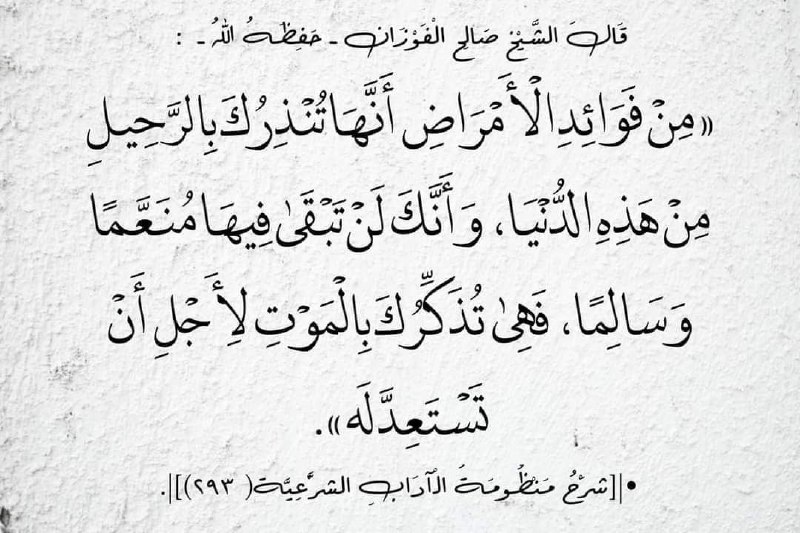 قَالَ الشَّيْخ صَالِح الْفَوْزَان - حَفِظَهُ اللهُ - :
«مِنْ فَوَائِدِ الْأَمْرَاضِ أَنَّهَا تُنْذِرُكَ بِالرَّحِيلِ
مِنْ هَذِهِ الدُّنْيَا، وَأَنَّكَ لَنْ تَبْقَىٰ فِيهَا مُنَعَّمًا
وَسَالِمًا، فَهِىٰ تُذَكِّرُكَ بِالْمَوْتِ لِأَجْلِ أَنْ
تَسْتَعِدَّلَه».
•|[شَرْحُ مَنْظُومَةُ الْآدَابِ الشَّرْعِيَّة( ٢٩٣)]|.